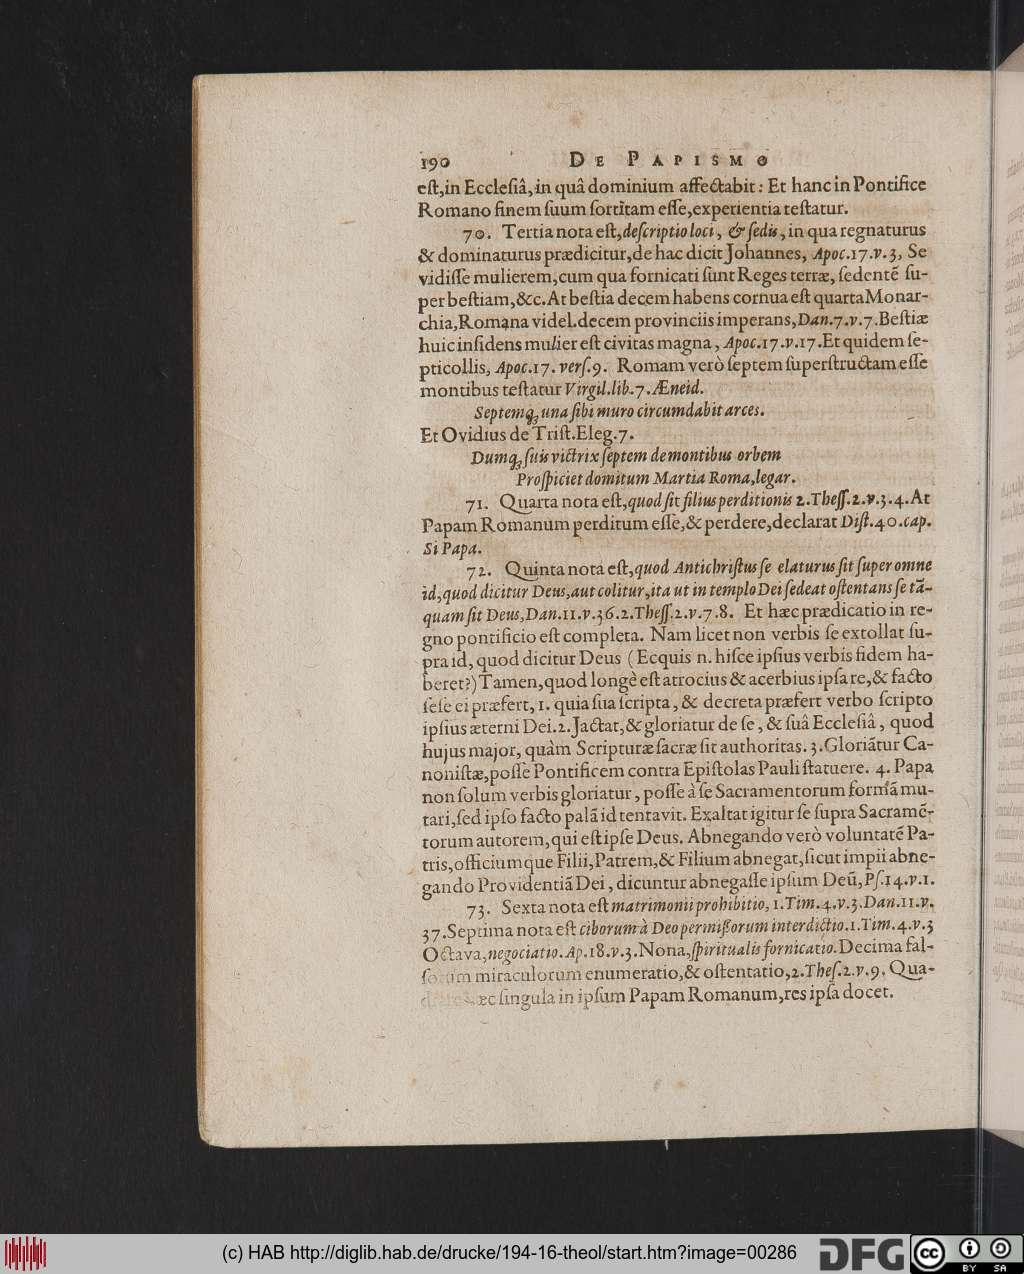 190 DE PAPISMO
eſt,in Eccleſiâ,in quâ dominium affectabit: Et hanc in Pontifice
Romano finem ſuum ſortitam eſſe,experientia teſtatur.
70. Tertia nota eſt,deſcriptio loci, & ſedis,in qua regnaturus
& dominaturus prædicitur,de hac dicit Johannes, Apoc.17.v.3, Se
vidiſſe mulierem,cum qua fornicati ſunt Reges terræ, ſedentẽ ſu-
per beſtiam,&c.At beſtia decem habens cornua eſt quarta Monar-
chia,Romana videl.decem provinciis imperans,Dan.7.v.7.Beſtiæ
huic inſidens mulier eſt civitas magna, Apoc.17.v.17.Et quidem ſe-
pticollis, Apoc.17. verſ.9. Romam verò ſeptem ſuperſtructam eſſe
montibus teſtatur Virgil.lib.7.Æneid.
Septemq; una ſibi muro circumdabit arces.
Et Ovidius de Triſt.Eleg.7.
Dumq; ſuis victrix ſeptem de montibus orbem
Proſpiciet domitum Martia Roma,legar.
71. Quarta nota eſt,quod ſit filius perditionis 2.Theſſ.2.v.3.4.At
Papam Romanum perditum eſſe,& perdere,declarat Diſt.40.cap.
Si Papa.
72. Quinta nota eſt,quod Antichriſtus ſe elaturus ſit ſuper omne
id,quod dicitur Deus,aut colitur,ita ut in templo Dei ſedeat oſtentans ſe tã-
quam ſit Deus,Dan.11.v.36.2.Theſſ.2.v.7.8. Et hæc prædicatio in re-
gno pontificio eſt completa. Nam licet non verbis ſe extollat ſu-
pra id, quod dicitur Deus (Ecquis n. hiſce ipſius verbis fidem ha-
beret?) Tamen,quod longè eſt atrocius & acerbius ipſa re,& facto
ſeſe ei præfert, 1. quia ſua ſcripta, & decreta præfert verbo ſcripto
ipſius æterni Dei.2.Jactat,& gloriatur de ſe, & ſuâ Eccleſiâ, quod
hujus major, quàm Scripturæ ſacræ ſit authoritas. 3.Gloriãtur Ca-
noniſtæ,poſſe Pontificem contra Epiſtolas Pauli ſtatuere. 4. Papa
non ſolum verbis gloriatur, poſſe à ſe Sacramentorum formã mu-
tari,ſed ipſo facto palã id tentavit. Exaltat igitur ſe ſupra Sacramẽ-
torum autorem,qui eſt ipſe Deus. Abnegando verò voluntatẽ Pa-
tris,officiumque Filii,Patrem,& Filium abnegat,ſicut impii abne-
gando Providentiã Dei, dicuntur abnegaſſe ipſum Deũ,Pſ.14.v.1.
73. Sexta nota eſt matrimonii prohibitio, 1.Tim.4.v.3.Dan.11.v.
37.Septima nota eſt ciborum à Deo permiſſorum interdictio.1.Tim.4.v.3
Octava,negociatio.Ap.18.v.3.Nona,ſpiritualis fornicatio.Decima fal-
ſorum miraculorum enumeratio,& oſtentatio,2.Theſ.2.v.9. Qua-
ſingula in ipſum Papam Romanum,res ipſa docet.
(c) HAB http://diglib.hab.de/drucke/194-16-theol/start.htm?image=00286
DFG
cc BY SA